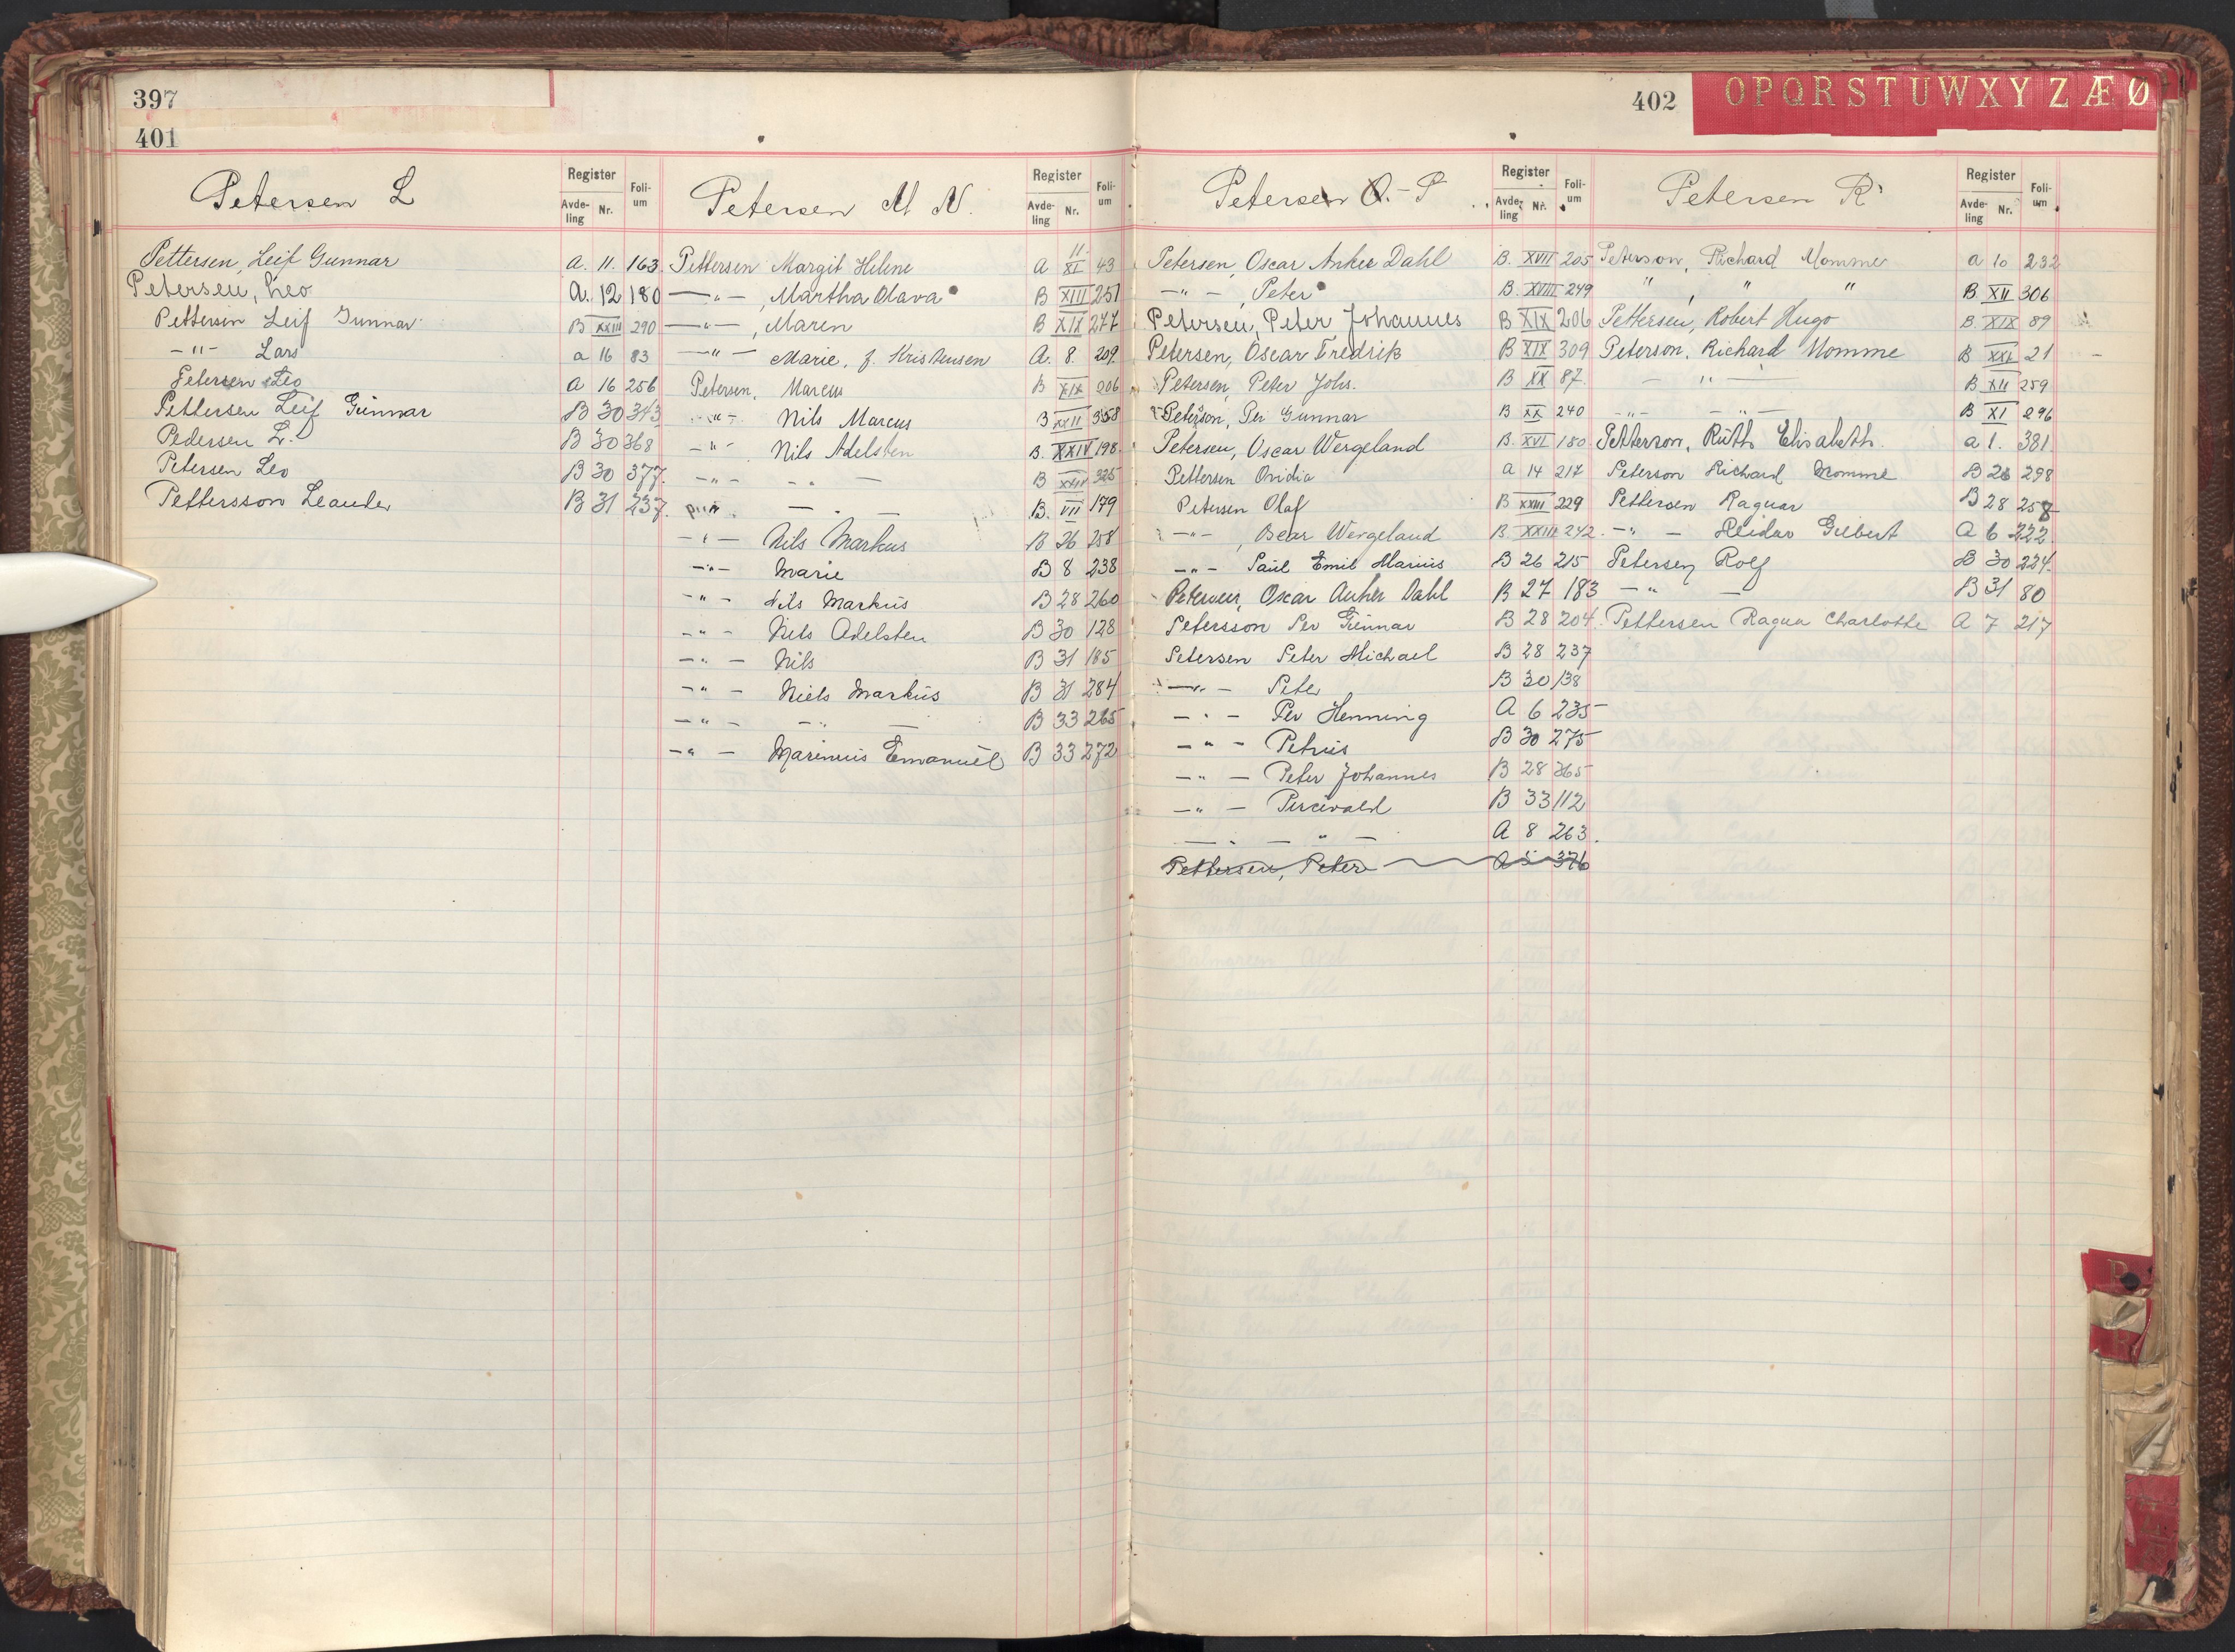 397
401
Petersen L
Register
Avde-
ling
Nr.
Foli-
um
Pettersen, Leif Gunnar A. 11. 163.
Petersen, Leo A. 12 180
Pettersen Leif Gunnar B XXIII 290
-"- Lars a 16 83
Petersen Leo a 16 256
Pettersen Leif Gunnar B 30 343
Pedersen L. B 30 368
Petersen Leo B 30 377.
Pettersson Leander B 31 237.
Petersen M N.
Register
Avde-
ling
Nr.
Foli-
um
Pettersen Margit Helene A 11 XI 43
-"-, Martha Olava B XIII 251
-"-, Maren B XIX 277
-"- Marie, f. Kristensen A. 8. 209.
Petersen, Marcus B XIX 206
-"- Nils Marcus B XXII 358
-"- Nils Adelsten B. XXIV 198.
-"- -"- B XXIV 325
-"- B. VII 179
-"- Nils Markus B 26 258
-"- Marie B 8 238
-"- Nils Markus B 28 260
-"- Nils Adelsten B 30 128
-"- Nils B 31 185
-"- Niels Markus B 31 284
-"- -"- B 33 265
-"- Marinius Emanuel B 33 272
402
O P Q R S T U W X Y Z Æ Ø
Petersen O.-P
Register
Avde-
ling
Nr.
Foli-
um
Petersen, Oscar Anker Dahl B. XVII 205
-"-, Peter B. XVIII 249
Petersen, Peter Johannes B XIX 206
Petersen, Oscar Fredrik B XIX 309
Petersen, Peter Johs. B XX 87.
Peterson, Per Gunnar B XX 240
Petersen, Oscar Wergeland B. XVI 180
Pettersen Ovidia a 14 217
Petersen Olaf B XXIII 229
-"-, Oscar Wergeland B. XXIII 242.
-"- Paul Emil Marius B 26 215
Petersen, Oscar Anker Dahl B 27 183
Petersson Per Gunnar B 28 204.
Petersen Peter Michael B 28 237
-"- Peter B 30 138
-"- Per Henning A 6 235
-"- Petrus B 30 275
-"- Peter Johannes B 28 365
-"- Percivald B 33 112
-"- -"- A 8 263.
Pettersen, Peter 376
Petersen R
Register
Avde-
ling
Nr.
Foli-
um
Peterson, Richard Momme a 10 232
" , " " B. XII 306
Pettersen, Robert Hugo B. XIX 89
Peterson, Richard Momme B XXI 21
-"- B XII 259
-"- -"- B XI 296
Petterson, Ruth Elisabeth. a 1. 381.
Peterson Richard Momme B 26 298
Pettersen Ragnar B 28 258
-"- Reidar Gilbert A 6 222
Petersen Rolf B 30 224.
-"- B 31 80
Pettersen Ragna Charlotte A 7 217